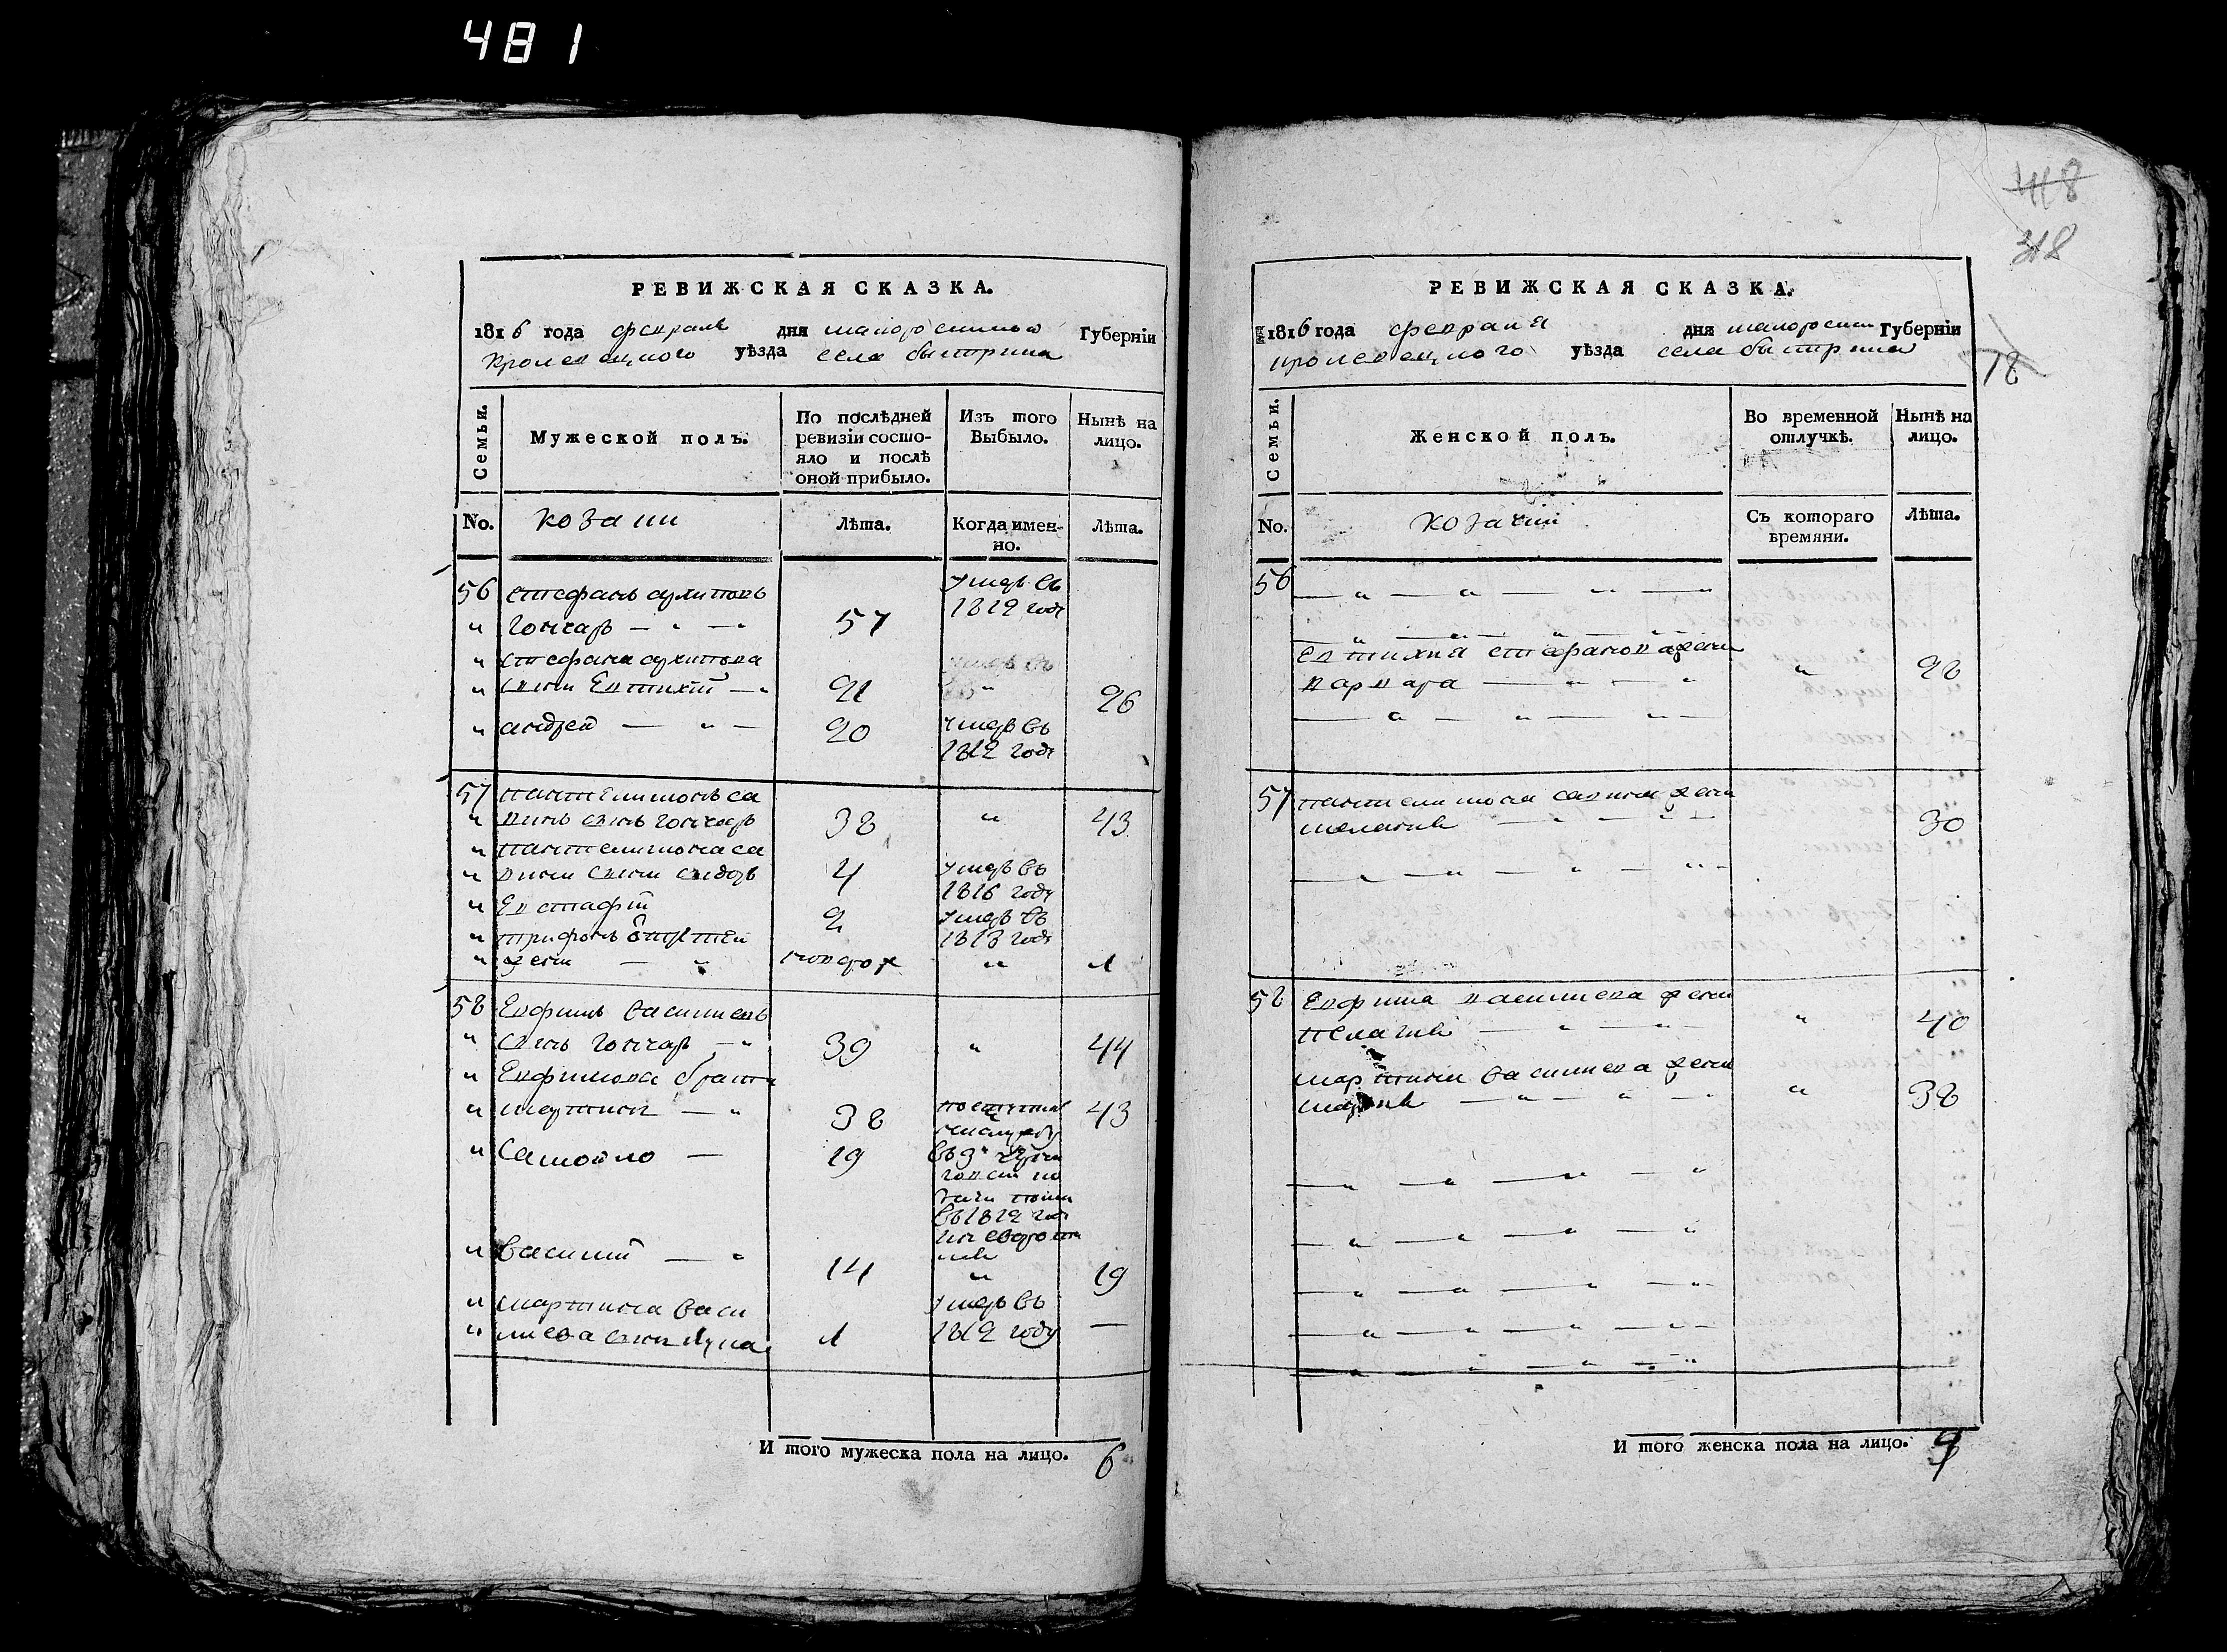 481
РЕВИЖСКАЯ СКАЗКА.
1816 года февраля дня малоросийской Губерніи
кролевецкого уѣзда села быстрика
Семьи.
Мужеской полъ.
По послѣдней ревизіи состояло и послѣ оной прибыло.
Изъ того Выбыло.
Нынѣ на лицо.
No.
козаки
Лѣта.
Когда именно.
Лѣта.
56 стефанъ архиповъ умеръ въ
" гончаръ — " — " 57 1812 годе
" стефана архипова
" сынъ Евтихій — " 21 " 26
" андрей — " — 20 умеръ въ
1812 годе
57 пантелимонъ са
" винъ сынъ гончаръ 38 " 43
" пантелимона са
" вина сынъ сидоръ 4 умеръ въ
1816 году
" Евстафій 2 умеръ въ
1813 годе
" трифонъ
" — " " 1
58 Евфимъ василіевъ
" сынъ гончаръ — " 39 " 44
" Евфимова братя
" мартинъ — " 38 " 43
" Самойло — 19
въ 1812 годе
" василій — " 14 " 19
" мартина васи умеръ въ
" лиева сынъ лука 1 1812 году —
И того мужеска пола на лицо. 6
418
318
78
РЕВИЖСКАЯ СКАЗКА.
1816 года февраля дня малоросій Губерніи
кролевецкого уѣзда села быстрика
Семьи.
Женской полъ.
Во временной отлучкѣ.
Нынѣ на лицо.
No.
козачки
Съ котораго времяни.
Лѣта.
56 — " — " — " — "
— " — " — " — "
Евтихия стефанова жена
варвара — " — " " 28
— " — " — " —
57 пантелимона савина жена
меланія — " — " — 30
— " — " — " — " —
58 Евфима василиева жена
пелагия — " — " — " 40
мартина василиева жена
мария — " — " — " " 38
— " — " — " — "
— " — " — " — "
— " — " — " — "
— " — " — " — "
— " — " — " — "
И того женска пола на лицо. 4